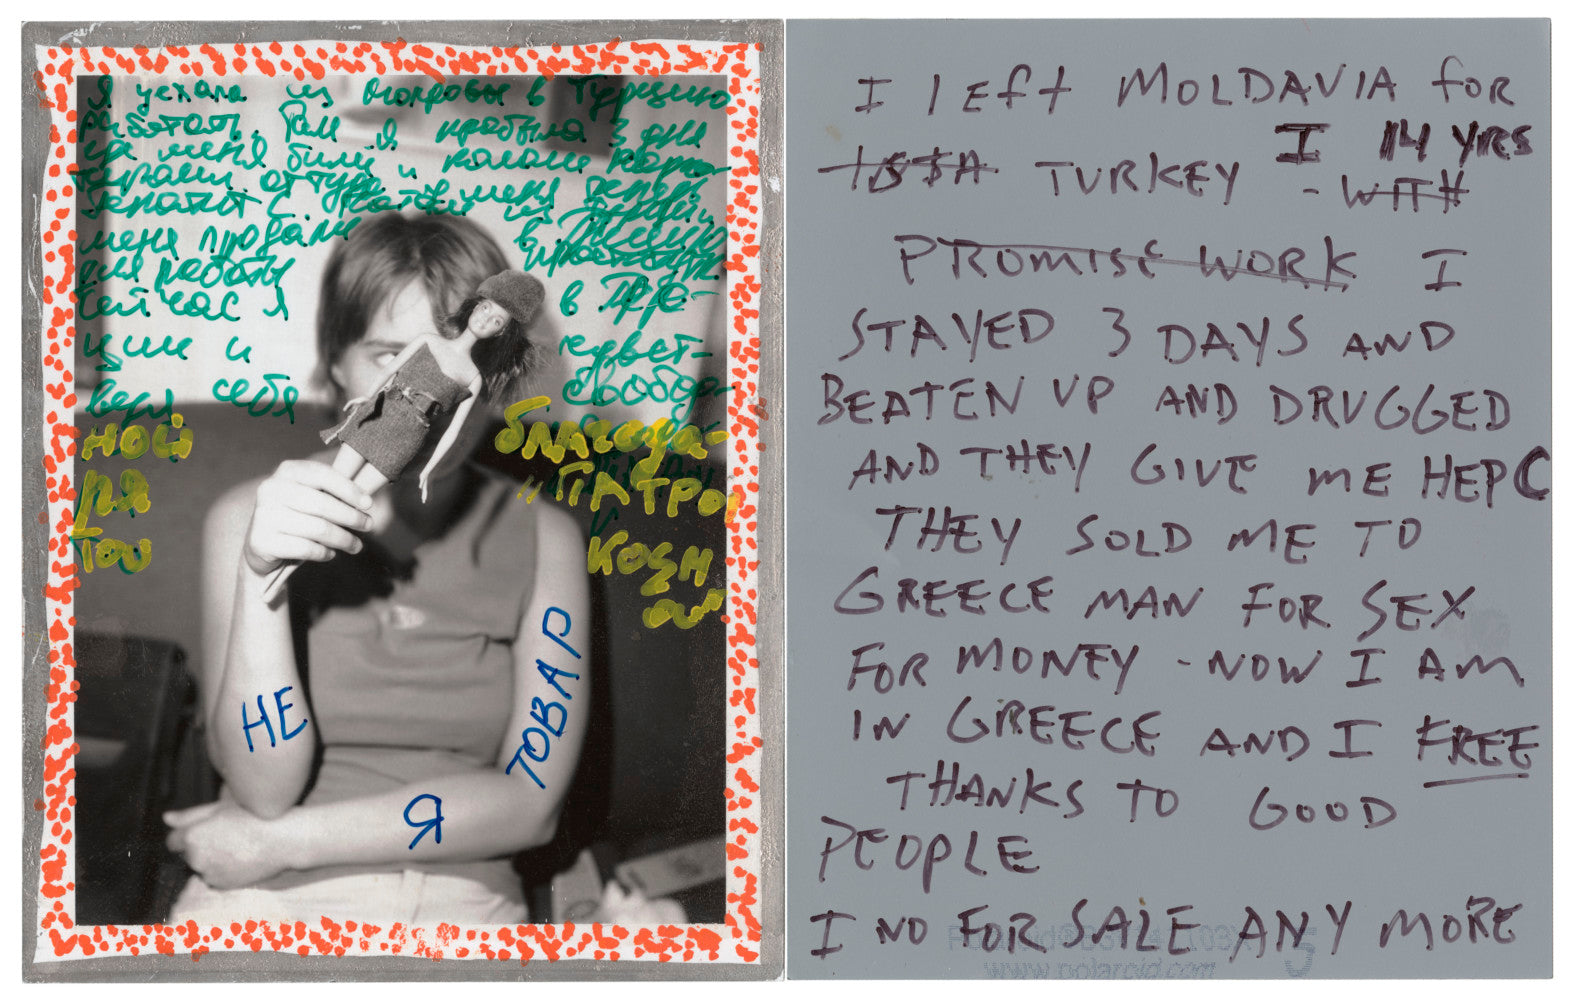 Я уехала из Молдовы в Турцию
работать. Там я пробыла 3 дня
где меня били и кололи нарко-
тиками оттуда у меня теперь
гепатит С
меня продали в Грецию
для работы проституткой
сейчас я в Гре-
ции и чувст-
вую себя свобод-
ной благода-
ря "ГІАТРОІ
ТОУ ΚΟЗМ
ОУ"
НЕ
ТОВАР
Я
I LEFT MOLDAVIA FOR
TURKEY - WITH I 14 YRS
PROMISE WORK I
STAYED 3 DAYS AND
BEATEN UP AND DRUGGED
AND THEY GIVE ME HEP C
THEY SOLD ME TO
GREECE MAN FOR SEX
FOR MONEY - NOW I AM
IN GREECE AND I FREE
THANKS TO GOOD
PEOPLE
I NO FOR SALE ANY MORE
www.polaroid.com